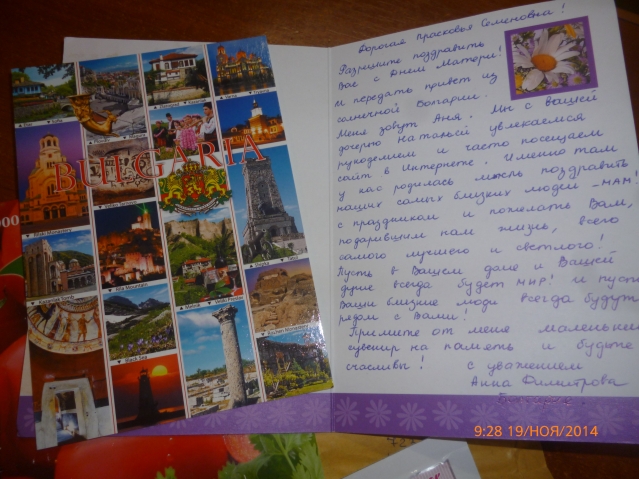 BULGARIA
Rila Mountain
Black Sea
Дорогая Прасковья Семеновна!
Разрешите поздравить
Вас с Днём Матери!
и передать привет из
солнечной Болгарии.
Меня зовут Аня. Мы с вашей
дочерью Натальей увлекаемся
рукоделием и часто посещаем
сайт в Интернете. Именно там
у нас родилась мысль поздравить
наших самых близких людей - МАМ!
с праздником и пожелать Вам,
подарившим нам жизнь, всего
самого лучшего и светлого!
Пусть в Вашем доме и Вашей
душе всегда будет МИР! и пусть
Ваши близкие люди всегда будут
рядом с Вами!
Примите от меня маленький
сувенир на память и будьте
счасливы!
с уважением
Анна Димитрова
9:28 19/НОЯ/2014